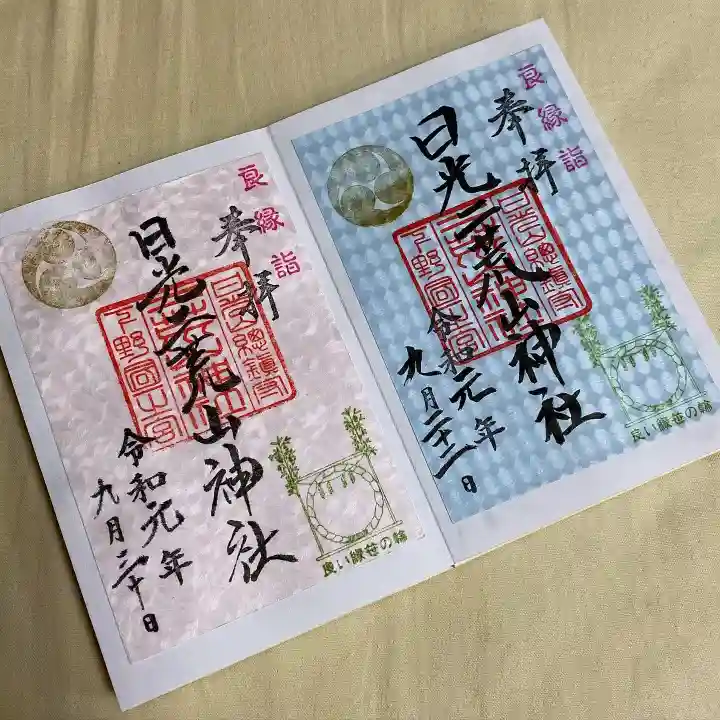 良縁詣
奉拝
日光二荒山神社
日光山總鎮守
下野國一宮
令和元年
九月二十二日
良い縁笹の輪
良縁詣
奉拝
日光二荒山神社
日光山總鎮守
下野國一宮
令和元年
九月三十日
良い縁笹の輪